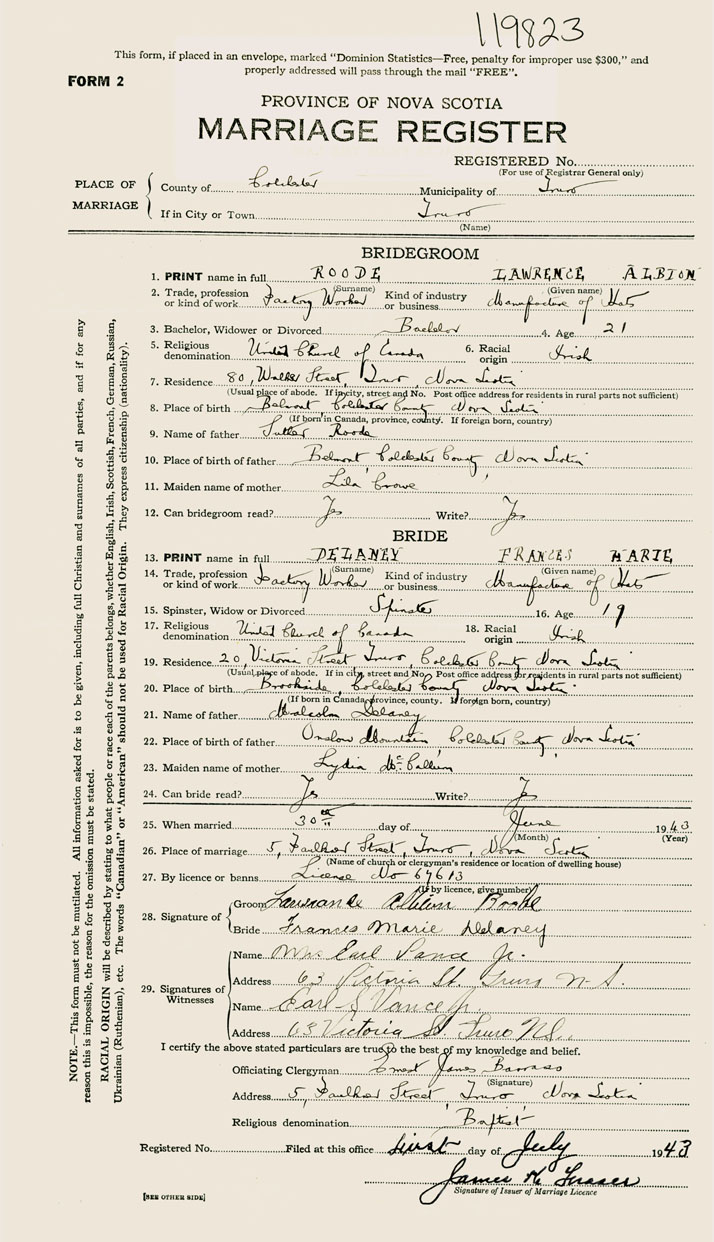 119823
This form, if placed in an envelope, marked "Dominion Statistics—Free, penalty for improper use $300," and
properly addressed will pass through the mail "FREE".
FORM 2
PROVINCE OF NOVA SCOTIA
MARRIAGE REGISTER
REGISTERED No.
(For use of Registrar General only)
PLACE OF MARRIAGE
County of Colchester Municipality of Truro
If in City or Town Truro
(Name)
BRIDEGROOM
1. PRINT name in full ROODE LAWRENCE ALBION
(Surname) (Given name)
2. Trade, profession or kind of work Factory Worker Kind of industry or business Manufacture of Hats
3. Bachelor, Widower or Divorced Bachelor 4. Age 21
5. Religious denomination United Church of Canada 6. Racial origin Irish
7. Residence 80, Walker Street, Truro, Nova Scotia
(Usual place of abode. If in city, street and No. Post office address for residents in rural parts not sufficient)
8. Place of birth Belmont, Colchester County Nova Scotia
(If born in Canada, province, county. If foreign born, country)
9. Name of father Roode
10. Place of birth of father Belmont Colchester County, Nova Scotia
11. Maiden name of mother Lila Crowe
12. Can bridegroom read? Yes Write? Yes
BRIDE
13. PRINT name in full DELANEY FRANCES MARIE
(Surname) (Given name)
14. Trade, profession or kind of work Factory Worker Kind of industry or business Manufacture of Hats
15. Spinster, Widow or Divorced Spinster 16. Age 19
17. Religious denomination United Church of Canada 18. Racial origin Irish
19. Residence 20, Victoria Street Truro, Colchester County Nova Scotia
(Usual place of abode. If in city, street and No. Post office address for residents in rural parts not sufficient)
20. Place of birth Brookside, Colchester County Nova Scotia
(If born in Canada province, county. If foreign born, country)
21. Name of father Malcolm Delaney
22. Place of birth of father Onslow Mountain, Colchester County, Nova Scotia
23. Maiden name of mother Lydia McCallum
24. Can bride read? Yes Write? Yes
25. When married 30th day of June 1943
(Month) (Year)
26. Place of marriage 5, Faulkner Street, Truro, Nova Scotia
(Name of church or clergyman's residence or location of dwelling house)
27. By licence or banns License No 67613
(If by licence, give number)
28. Signature of
Groom Lawrance Albion Roode
Bride Frances Marie Delaney
29. Signatures of Witnesses
Name Mrs Earl Vance Jr.
Address 63 Victoria St. Truro N.S.
Name Earl S Vance Jr.
Address 63 Victoria St. Truro N.S.
I certify the above stated particulars are true to the best of my knowledge and belief.
Officiating Clergyman Ernest James Barrass
(Signature)
Address 5, Faulkner Street, Truro, Nova Scotia
Religious denomination Baptist
Registered No. Filed at this office first day of July 1943
James K Fraser
Signature of Issuer of Marriage Licence
[SEE OTHER SIDE]
NOTE.—This form must not be mutilated. All information asked for is to be given, including full Christian and surnames of all parties, and if for any
reason this is impossible, the reason for the omission must be stated.
RACIAL ORIGIN will be described by stating to what people or race each of the parents belongs, whether English, Irish, Scottish, French, German, Russian,
Ukrainian (Ruthenian), etc. The words "Canadian" or "American" should not be used for Racial Origin. They express citizenship (nationality).